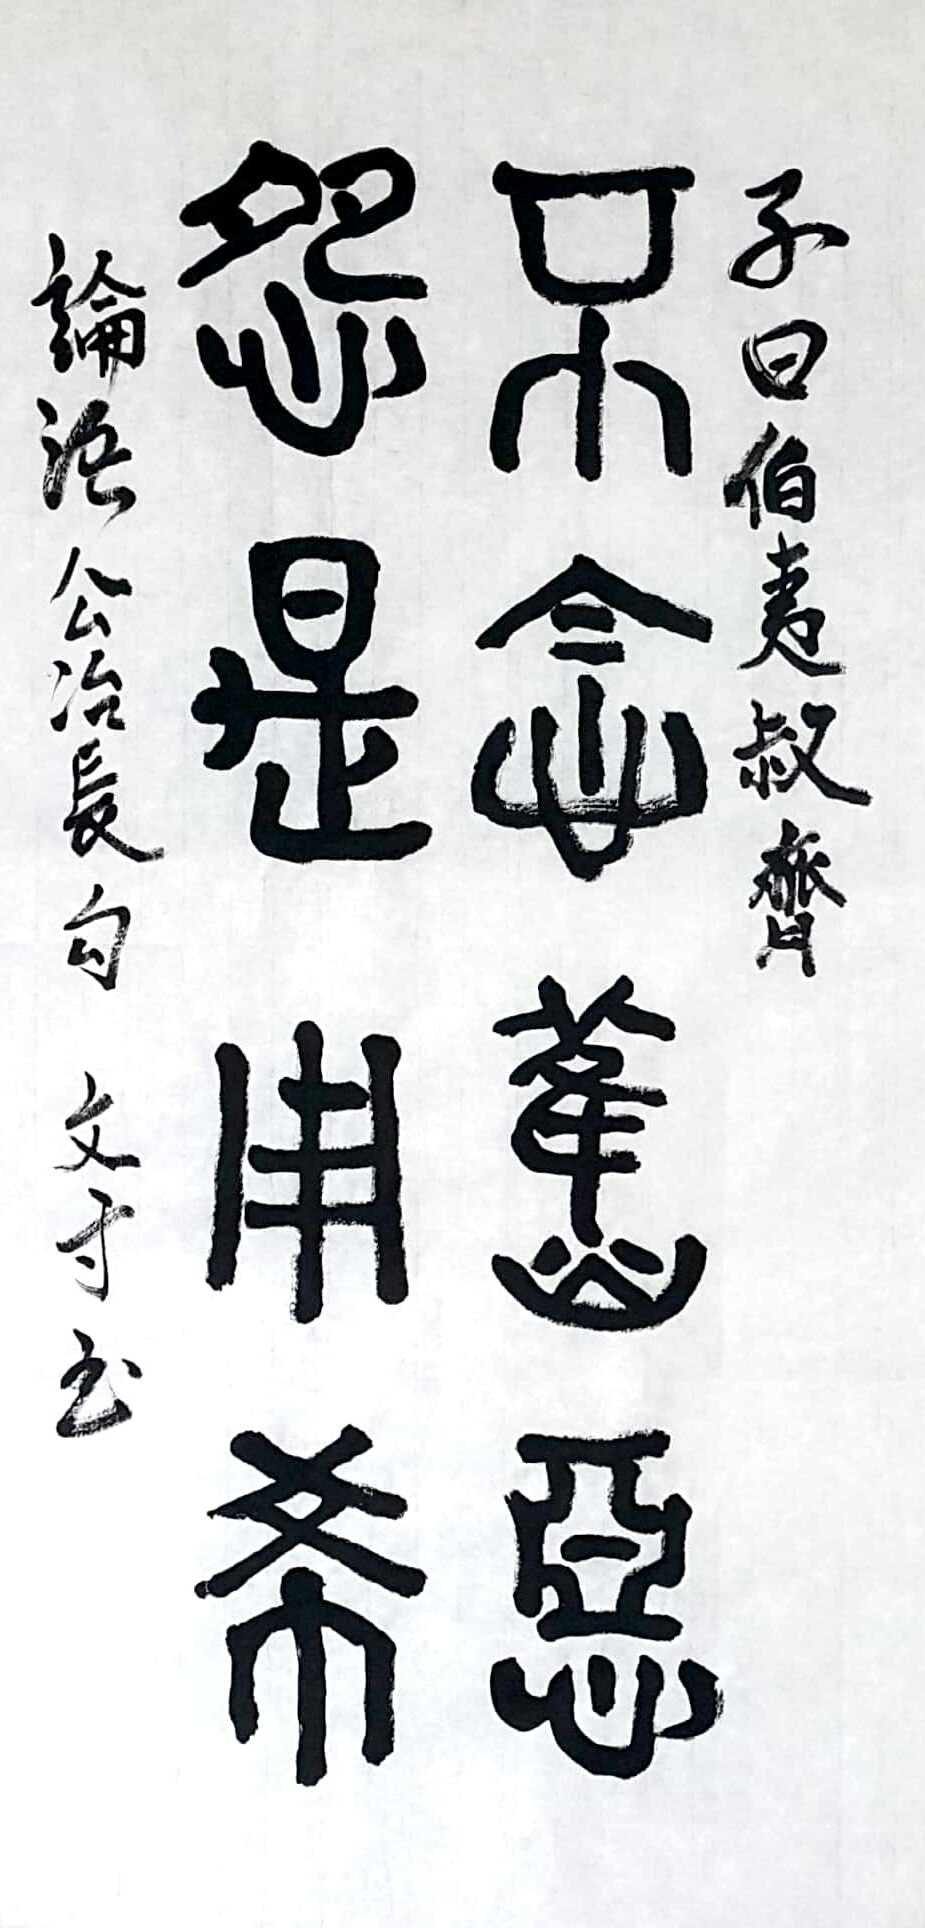 子曰伯夷叔齊
不念舊惡
怨是用希
論語公冶長句 文于书